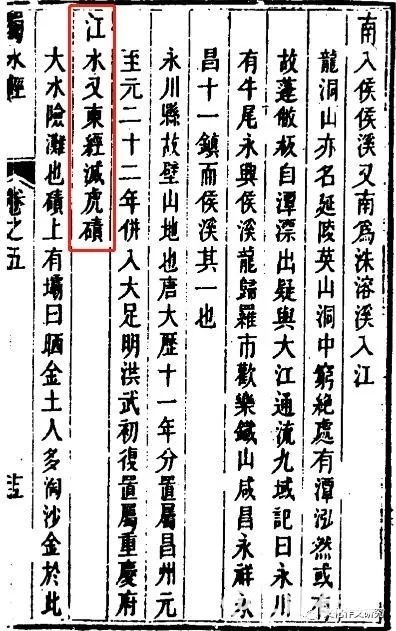 南入侯侯溪又南為洙溶溪入江
龍洞山亦名延陵英山洞中窮絶處有潭泓然或有
故蓬敝板自潭漂出疑與大江通流九域記曰永川
有牛尾永興侯溪龍歸羅市歡樂鐵山咸昌永祥永
昌十一鎮而侯溪其一也
永川縣故壁山地也唐大歷十一年分置屬昌州元
至元二十二年併入大足明洪武初復置屬重慶府
江水又東經滅虎磧
大水險灘也磧上有壩曰晒金土人多淘沙金於此
蜀水經
卷之五